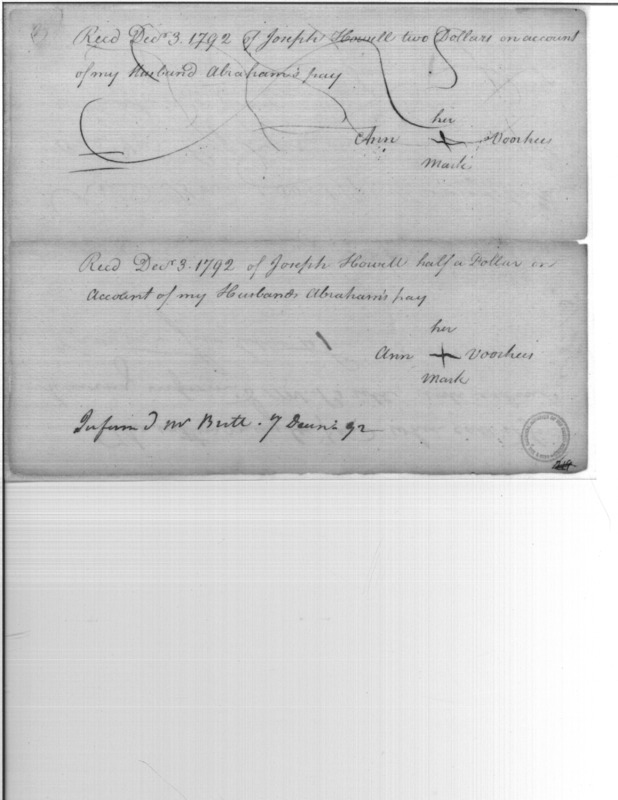 Recd Decr 3. 1792 of Joseph Howell two Dollars on account
of my Husband Abraham's pay
her
Ann + Voorhees
Mark
Recd Decr 3. 1792 of Joseph Howell half a Dollar on
Account of my Husbands Abraham's pay
her
Ann + Voorhees
Mark
Inform'd Mr 7 92